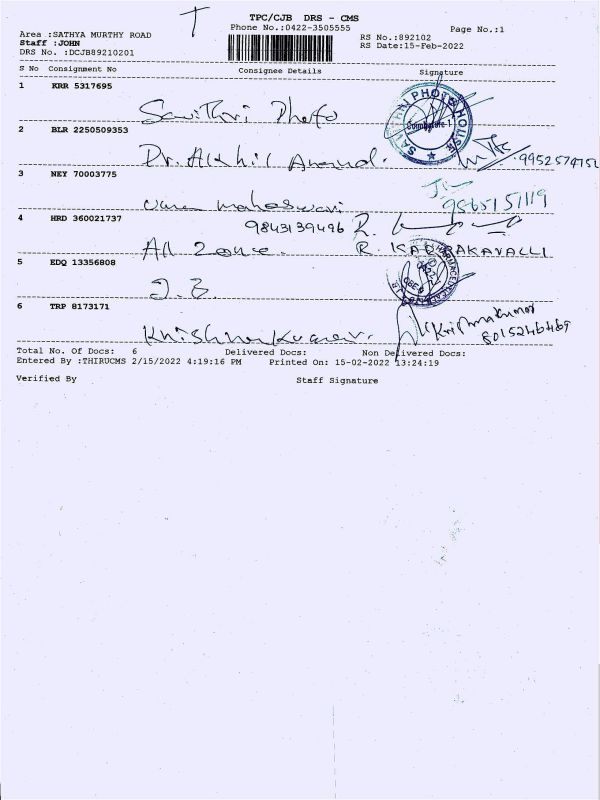 TPC/CJB DRS - CMS
Phone No.:0422-3505555
Page No.:1
Area :SATHYA MURTHY ROAD
Staff :JOHN
DRS No. :DCJB89210201
RS No.:892102
RS Date:15-Feb-2022
S No Consignment No Consignee Details Signature
1 KRR 5317695
Savithri Photo
SAVITHRI PHOTO HOUSE
Coimbatore-1
2 BLR 2250509353
Dr. Akhil Anand.
3 NEY 70003775
Uma maheswari
9865151119
4 HRD 360021737
9843139496 R.
All Zone.
5 EDQ 13356808
J.B.
6 TRP 8173171
Krishna Kumar.
Krishnakumar
8015246469
Total No. Of Docs: 6 Delivered Docs: Non Delivered Docs:
Entered By :THIRUCMS 2/15/2022 4:19:16 PM Printed On: 15-02-2022 13:24:19
Verified By Staff Signature